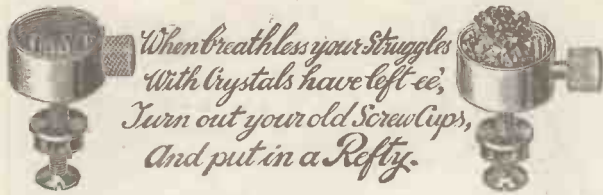 When breathless your Struggles
With Crystals have left 'ee',
Turn out your old Screw Cups,
And put in a Refty.